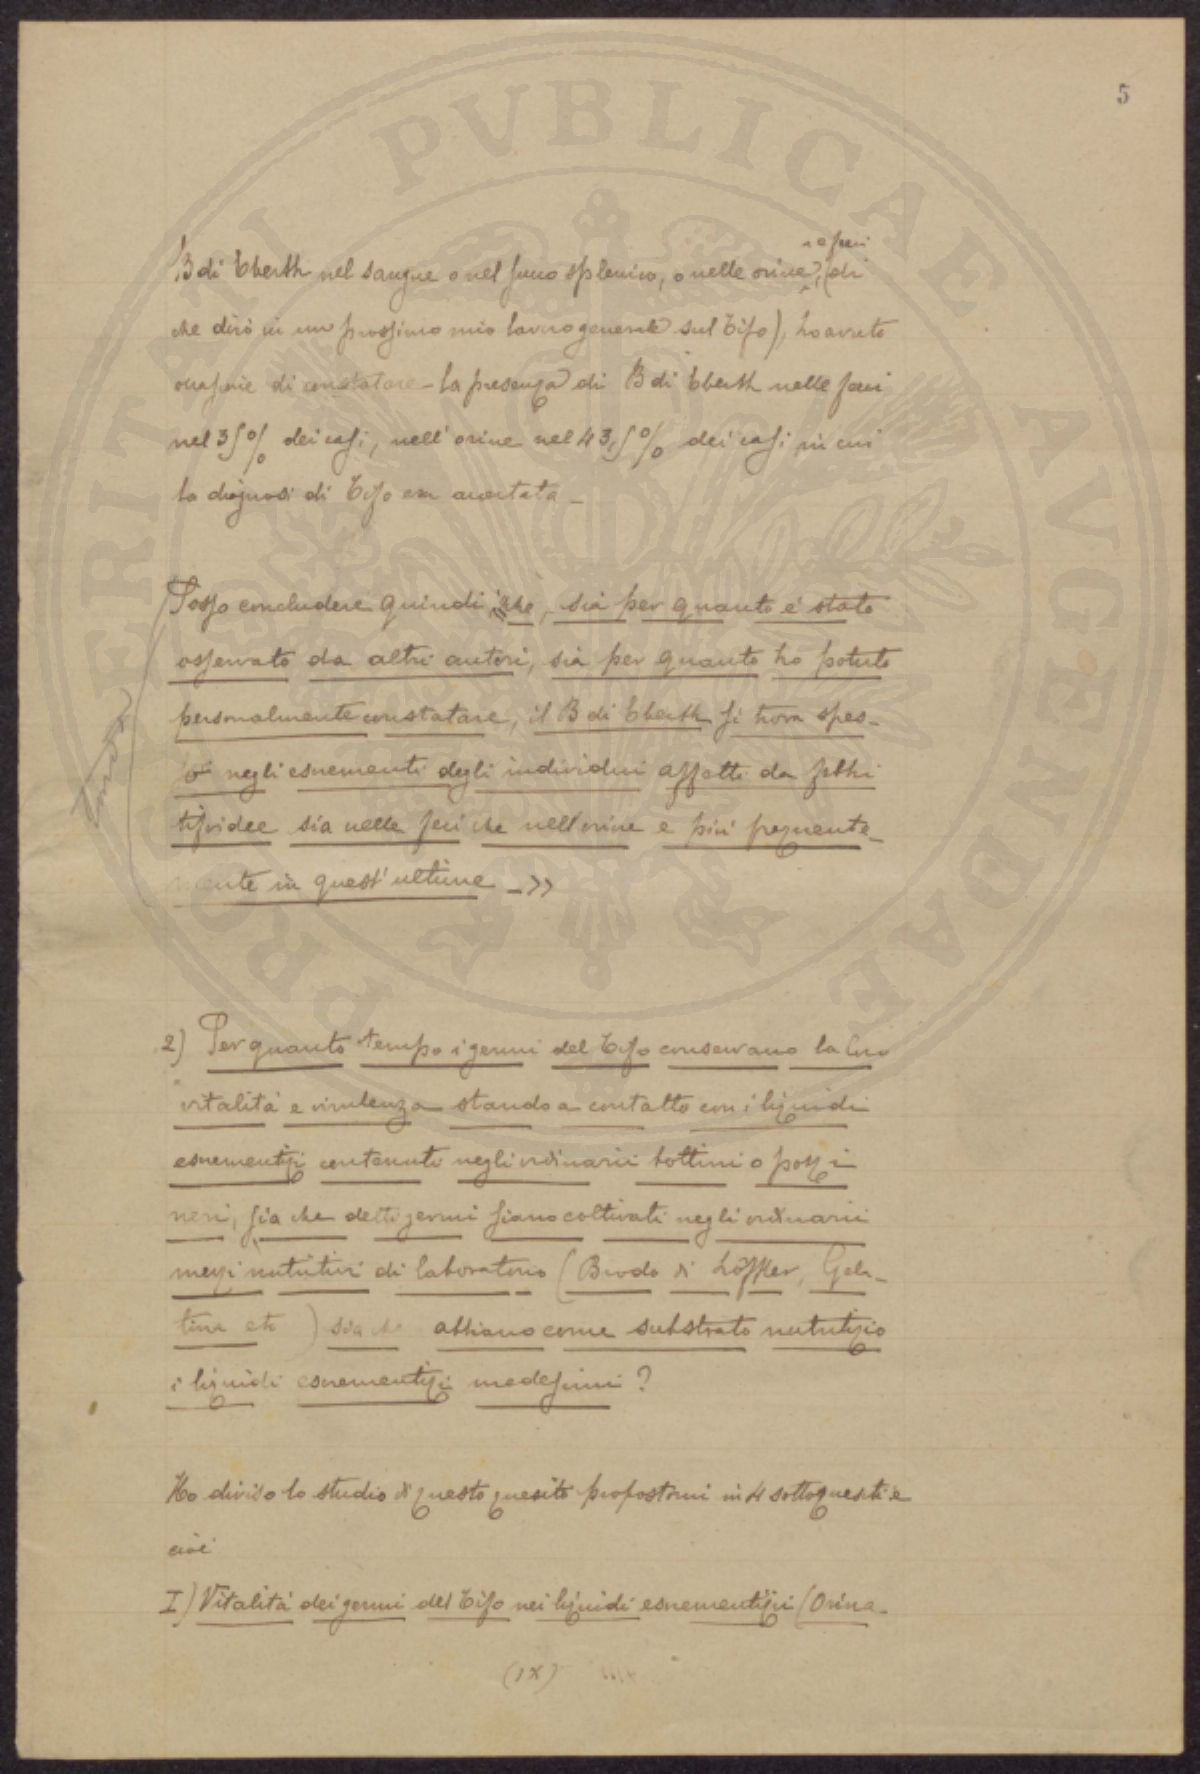 5
PROSPERITATI PVBLICAE AVGENDAE
o feci
B di Eberth nel sangue o nel succo splenico, o nelle orine, (di
che dirò in un prossimo mio lavoro generale sul Tifo), ho avuto
occasione di constatare la presenza di B di Eberth nelle feci
nel 35% dei casi, nell'orine nel 43,5% dei casi in cui
la diagnosi di Tifo era accertata_
Posso concludere quindi "che, sia per quanto è stato
osservato da altri autori, sia per quanto ho potuto
personalmente constatare, il B di Eberth si trova spes-
so negli escrementi degli individui affetti da febbri
tifoidee sia nelle feci che nell'orine e più frequente-
mente in quest'ultime_>>
2) Per quanto tempo i germi del Tifo conservano la loro
vitalità e virulenza stando a contatto con i liquidi
escrementizi contenuti negli ordinarii bottini o pozzi
neri, sia che detti germi siano coltivati negli ordinarii
mezzi nutritivi di laboratorio (Brodo di Löffler, Gela-
tina etc) sia che abbiano come substrato nutritizio
i liquidi escrementizi medesimi?
Ho diviso lo studio di questo quesito propostomi in 4 sottoquesiti e
cioè
I) Vitalità dei germi del Tifo nei liquidi escrementizi (Orina-
(IX)